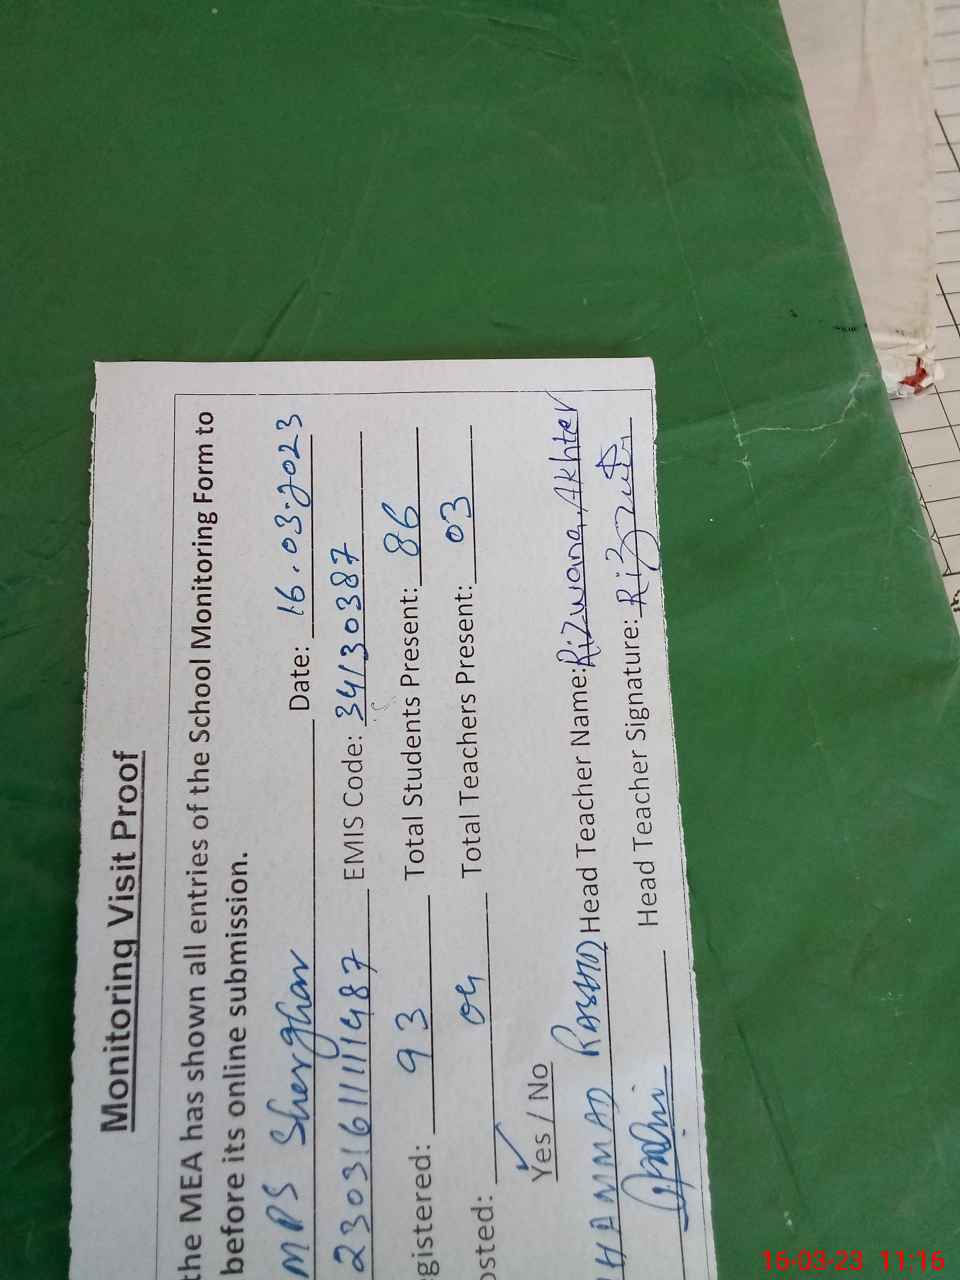 Monitoring Visit Proof
the MEA has shown all entries of the School Monitoring Form to
before its online submission.
MPS Sherghar Date: 16.03.2023
230316111487 EMIS Code: 34130387
gistered: 93 Total Students Present: 86
osted: 04 Total Teachers Present: 03
Yes / No
HAMMAD RASHID Head Teacher Name: Rizwana Akhter
Head Teacher Signature:
16-03-23 11:16